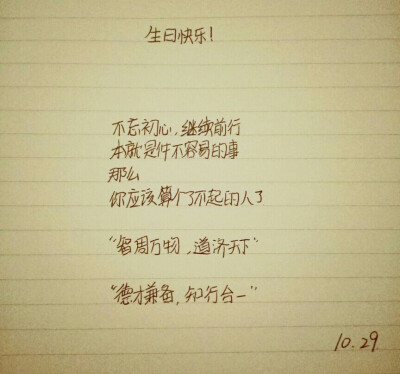 生日快乐！
不忘初心，继续前行
本就是件不容易的事
那么
你应该算个了不起的人了
“智周万物，道济天下”
“德才兼备，知行合一”
10.29